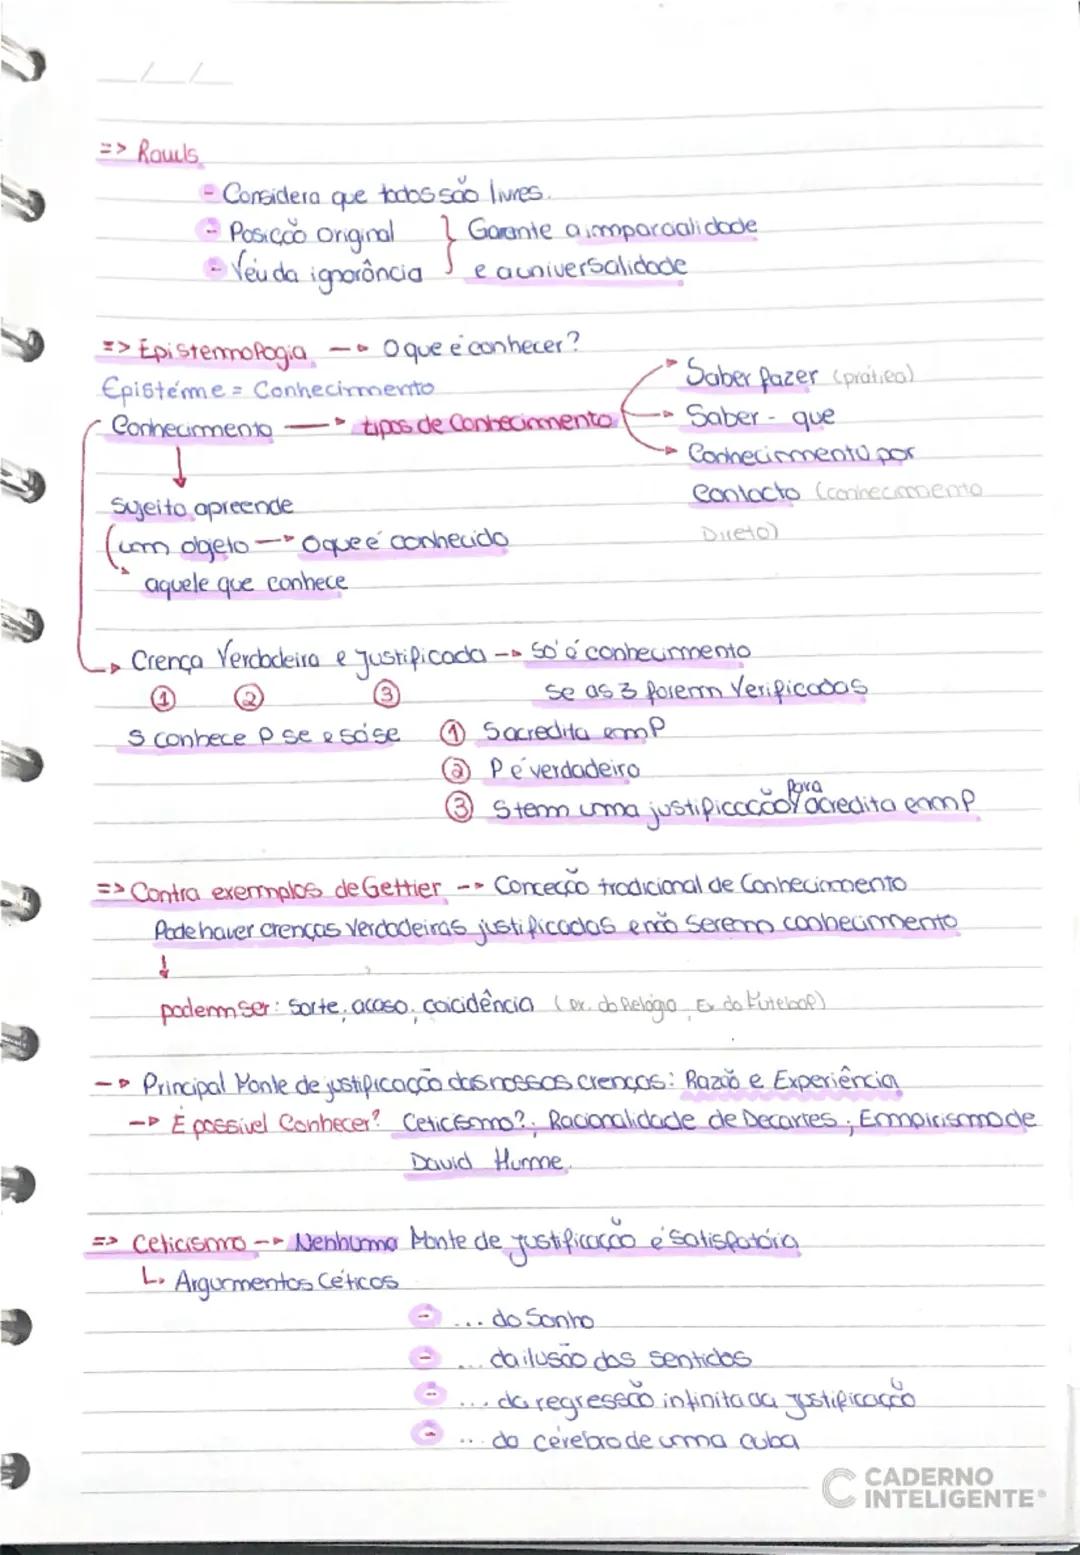 __/__/__
=> Rawls
- Considera que todos são livres.
- Posição original } Garante a imparcialidade
- Véu da ignorância e a universalidade
=> Epistemologia → O que é conhecer?
Epistéme = Conhecimento
Conhecimento → tipos de Conhecimento
Saber fazer (prática)
Saber - que
Conhecimento por
Contacto (conhecimento
Direto)
Sujeito apreende
um objeto → O que é conhecido
aquele que conhece
Crença Verdadeira e Justificada → Só é conhecimento
① ② ③ se as 3 forem Verificadas
S conhece P se e só se ① S acredita em P
② P é verdadeiro
③ S tem uma justificação para acredita em P
=> Contra exemplos de Gettier → Conceção tradicional de Conhecimento
Pode haver crenças Verdadeiras justificadas e não serem conhecimento
↓
podem ser: Sorte, acaso, coicidência (ex. do Relógio, Ex do Futebol)
→ Principal Fonte de justificação das nossas crenças: Razão e Experiência
→ É possivel Conhecer? Ceticismo?; Racionalidade de Decartes; Empirismo de
David Hume.
=> Ceticismo → Nenhuma Fonte de justificação é Satisfatória
↳ Argumentos Céticos
- ... do Sonho
- ... da ilusão dos sentidos
- ... da regressão infinita da justificação
- ... do cérebro de uma cuba
CADERNO
INTELIGENTE®